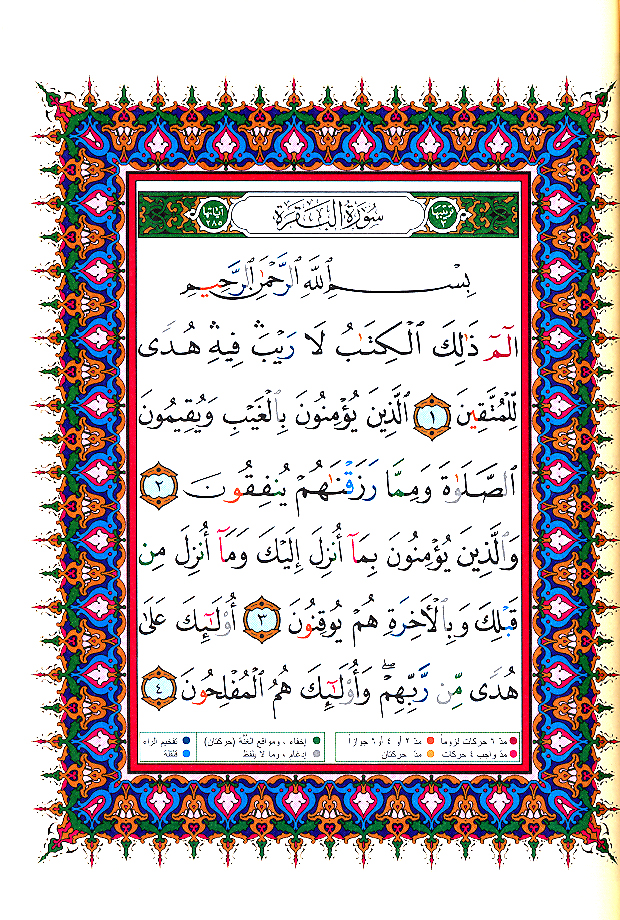 ترتيبها ٢ سُورَةُ البَقَرَةِ آياتها ٢٨٥
بِسْمِ ٱللَّهِ ٱلرَّحْمَٰنِ ٱلرَّحِيمِ
الٓمٓ ذَٰلِكَ ٱلْكِتَٰبُ لَا رَيْبَ ۛ فِيهِ ۛ هُدًى
لِّلْمُتَّقِينَ ١ ٱلَّذِينَ يُؤْمِنُونَ بِٱلْغَيْبِ وَيُقِيمُونَ
ٱلصَّلَوٰةَ وَمِمَّا رَزَقْنَٰهُمْ يُنفِقُونَ ٢
وَٱلَّذِينَ يُؤْمِنُونَ بِمَآ أُنزِلَ إِلَيْكَ وَمَآ أُنزِلَ مِن
قَبْلِكَ وَبِٱلْأٓخِرَةِ هُمْ يُوقِنُونَ ٣ أُوْلَٰٓئِكَ عَلَىٰ
هُدًى مِّن رَّبِّهِمْ ۖ وَأُوْلَٰٓئِكَ هُمُ ٱلْمُفْلِحُونَ ٤
مدّ ٦ حركات لزوماً مدّ ٢ أو ٤ أو ٦ جوازاً إخفاء، ومواقع الغُنَّة (حركتان) تفخيم الراء
مدّ واجب ٤ حركات مدّ حركتان إدغام، وما لا يُلفَظ قلقلة